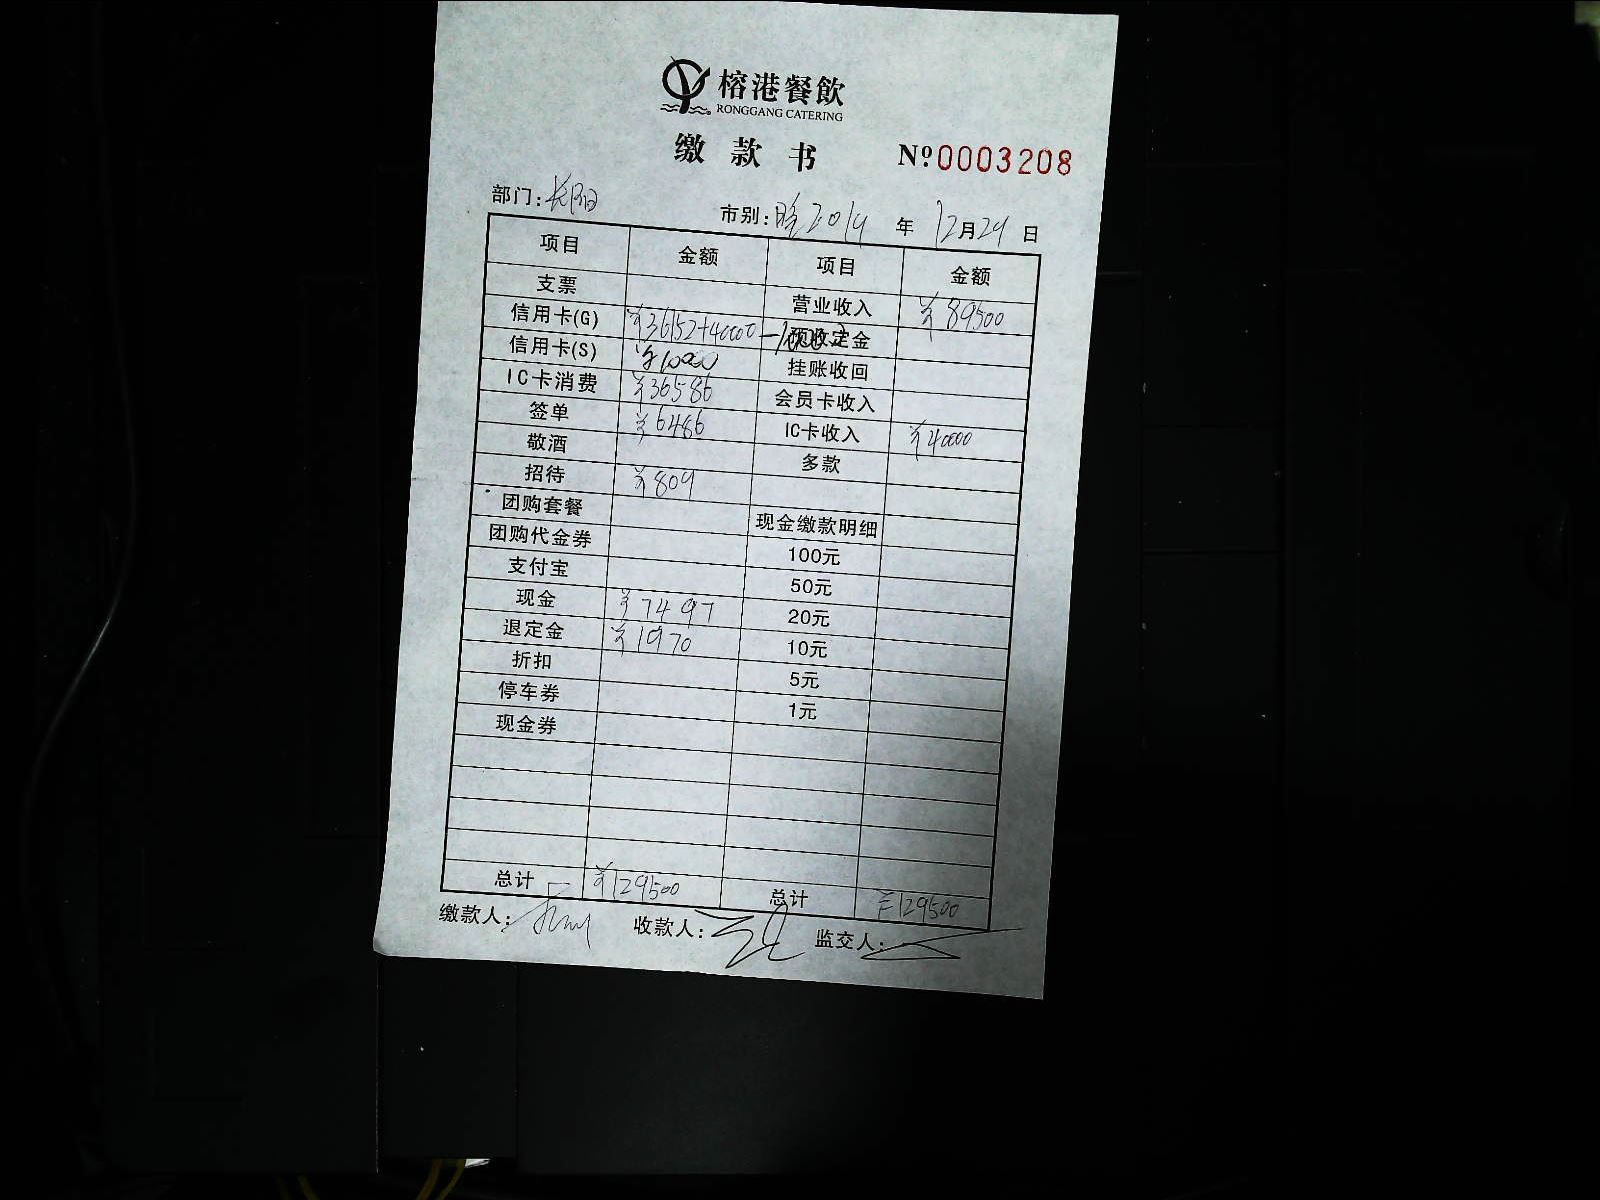 榕港餐飲
RONGGANG CATERING
缴款书 №0003208
部门:长阳 市别:晚 2019 年 12月29日
项目 金额 项目 金额
支票 营业收入 ¥89500
信用卡(G) ¥36152+40000-10000 预收定金
信用卡(S) ¥10000 挂账收回
IC卡消费 ¥36586 会员卡收入
签单 ¥6486 IC卡收入 ¥40000
敬酒 多款
招待 ¥809
团购套餐 现金缴款明细
团购代金券 100元
支付宝 50元
现金 ¥7497 20元
退定金 ¥1970 10元
折扣 5元
停车券 1元
现金券
总计 ¥129500 总计 ¥129500
缴款人: 收款人: 监交人: